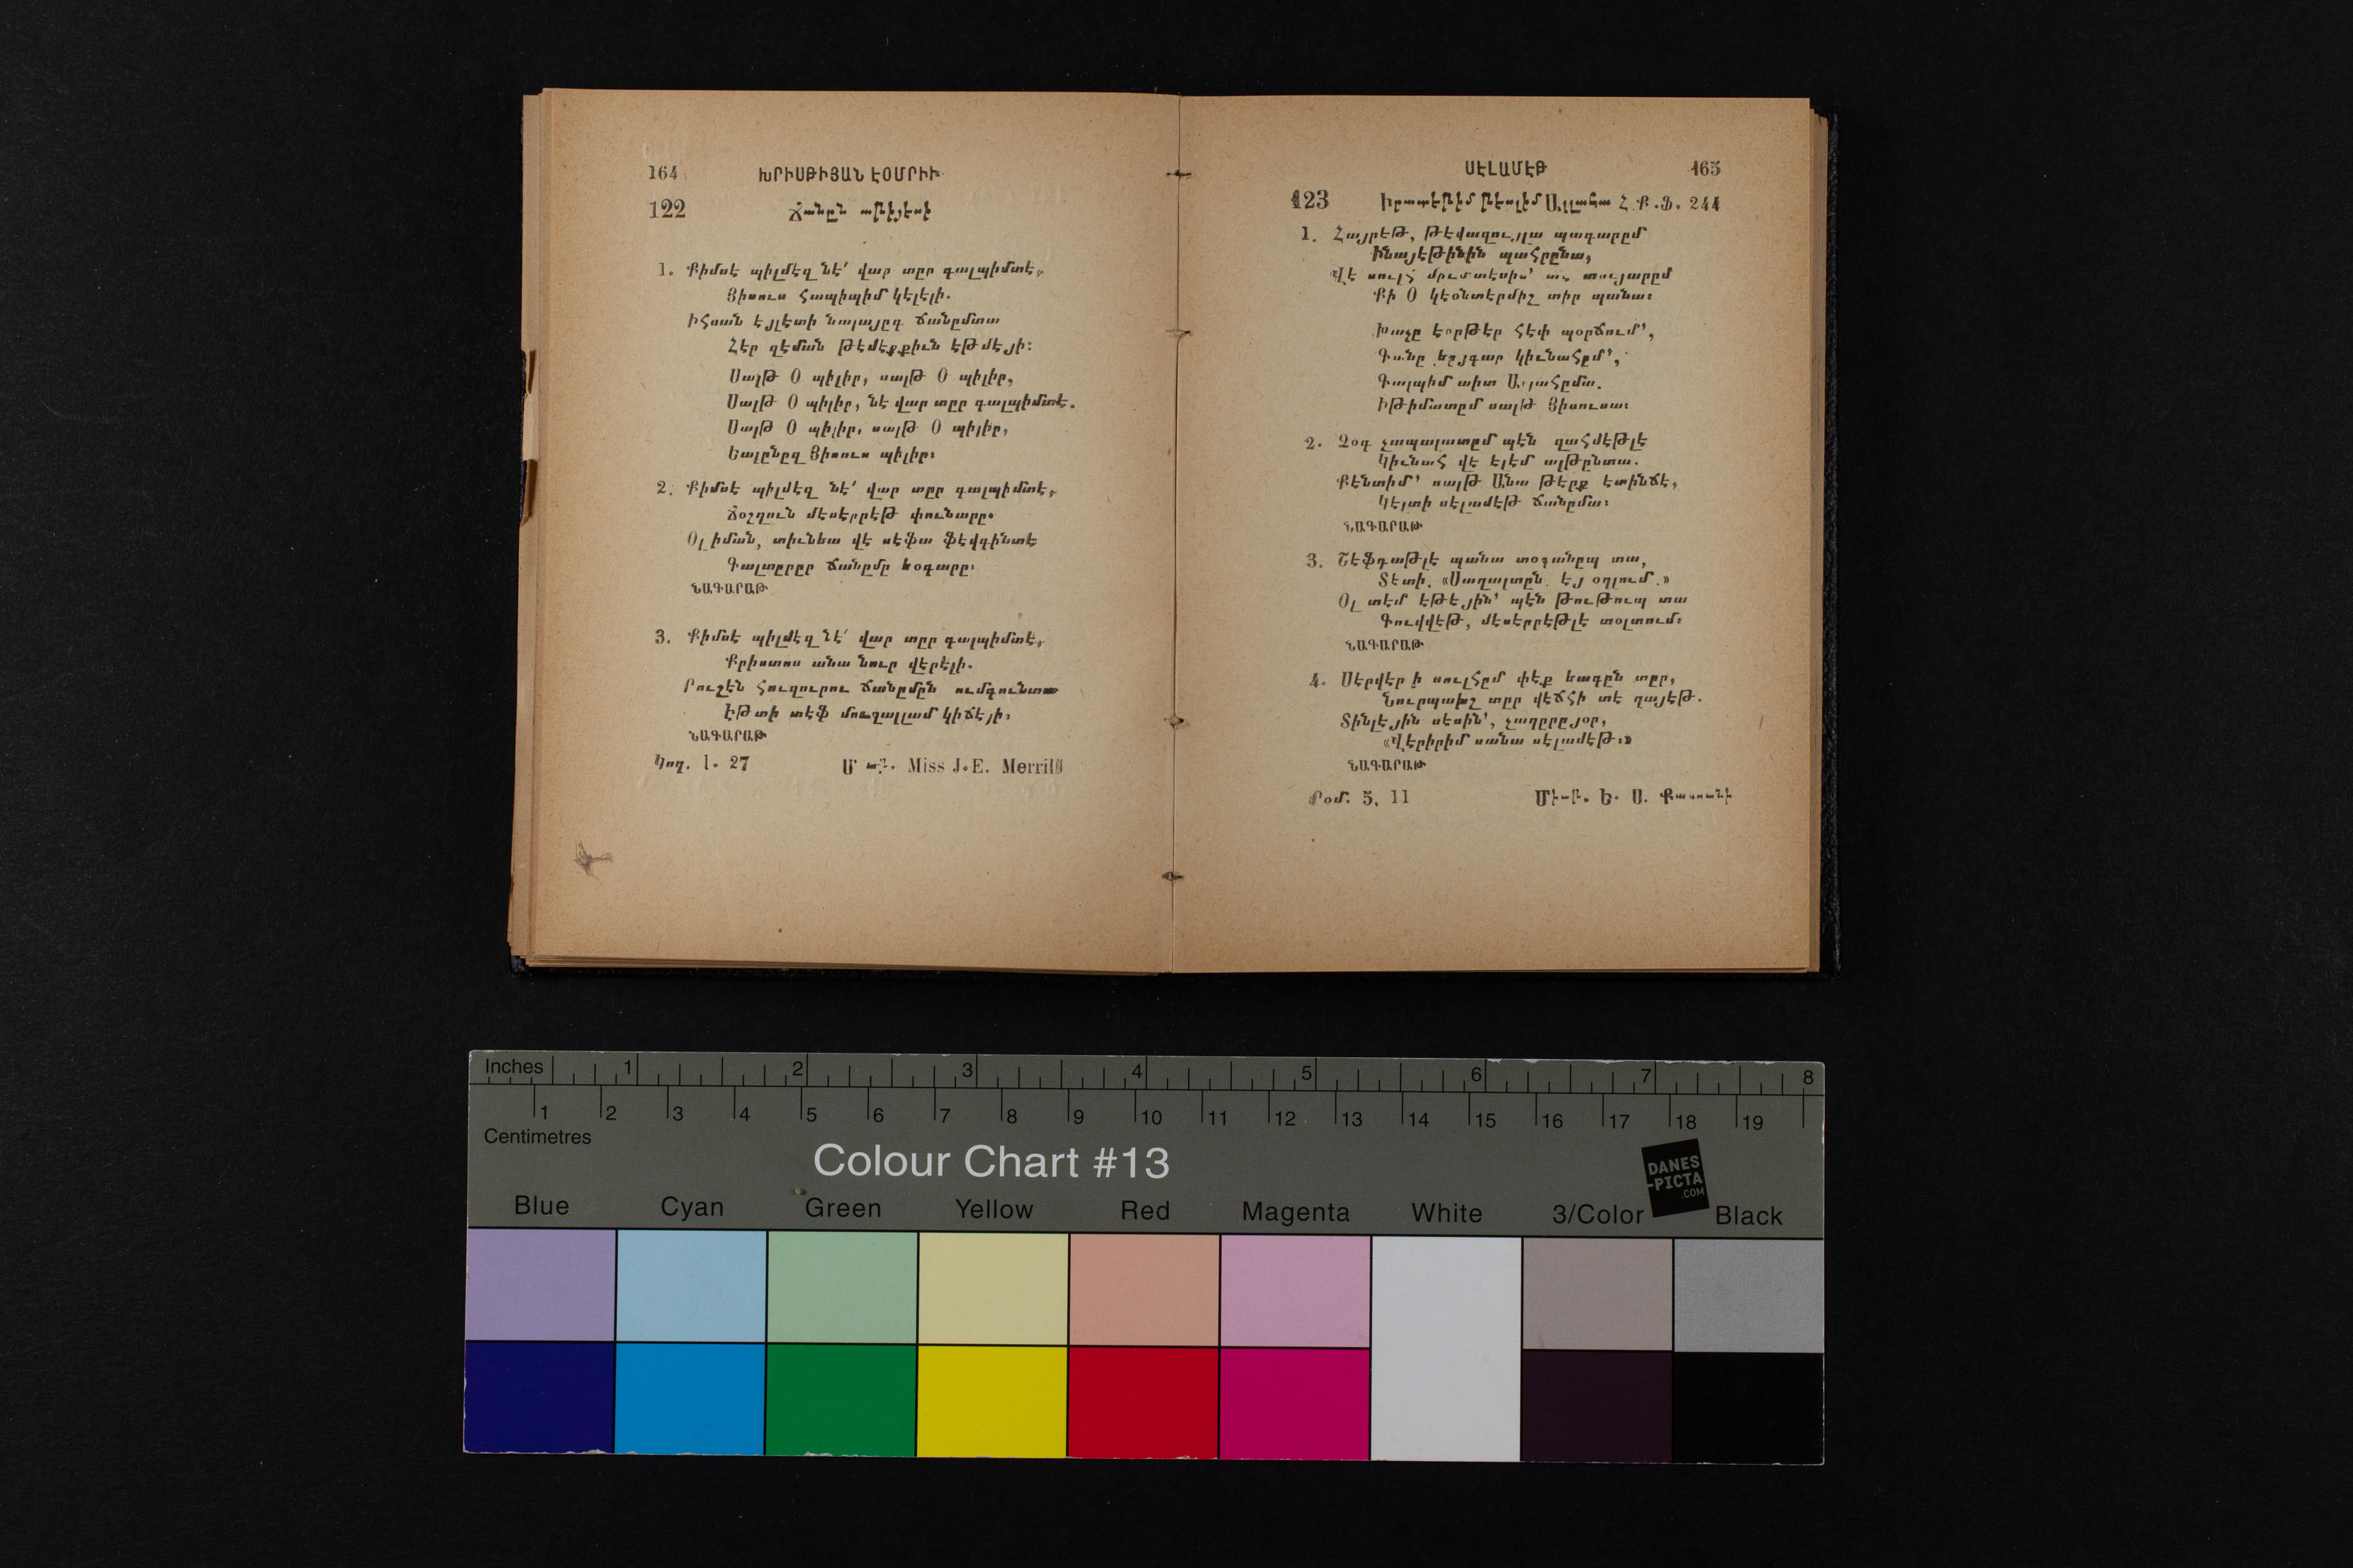 164 ԽՐԻՍԹԻՅԱՆ ԷՕՄՐԻՒ
122 Ճանըն
1. Քիմսէ պիլմէզ նէ՛ վար տըր գալպիմտէ,
Յիսուս հապիպիմ կելելի.
Իհսան էյլետի նալայըգ ճանըմտա
Հէր զէման թէմէքքիւն էթմէյի։
Սալթ Օ պիլիր, սալթ Օ պիլիր,
Սալթ Օ պիլիր, նէ վար տըր գալպիմտէ.
Սալթ Օ պիլիր, սալթ Օ պիլիր,
Եալընըզ Յիսուս պիլիր։
2. Քիմսէ պիլմէզ նէ՛ վար տըր գալպիմտէ,
Ճօշղուն մէսէրրէթ փունարը.
Օլ իման, տիւնեա վէ սէֆա ֆէվգինտէ
Գալտըրըր ճանըմը եօգարը։
ՆԱԳԱՐԱԹ
3. Քիմսէ պիլմէզ նէ՛ վար տըր գալպիմտէ,
Քրիստոս անա նուր վէրէլի.
Րուշէն հուզուրու ճանըմըն ումգունտա
Էթտի տէֆ մուզալլամ կիճէյի։
ՆԱԳԱՐԱԹ
Կող. 1. 27 Miss J.E. Merrill
ՍԷԼԱՄԷԹ 165
123 Հ.Ք.Ֆ. 244
1. Հայրէթ, թէվազույլա պագարըմ
Ինայէթինին պահրընա,
Վէ սուլհ
Քի Օ կեօնտէրմիշ տիր պանա։
Խաչը էօրթէր հէփ պօրճում՚,
Գանը եըյգար կիւնահըմ՚,
Գալպիմ աիտ Ալլահըմա.
Իթիմատըմ սալթ Յիսուսա։
2. Չօգ չապալատըմ պէն զահմէթլէ
Կիւնահ վէ էլէմ ալթընտա.
Քէնտիմ՚ սալթ Անա թէրք էտինճէ,
Կելտի սէլամէթ ճանըմա։
ՆԱԳԱՐԱԹ
3. Շէֆգաթլէ պանա տօգանըպ տա,
Տէտի. «Սաղալտըն. էյ օղլում.»
Օլ տէմ էթէյին՚ պէն թութուպ տա
Գուվվէթ, մէսէրրէթլէ տօլտում։
ՆԱԳԱՐԱԹ
4. Սէրվէր ի սուլհըմ փէք եագըն տըր,
Նուրպախշ տըր վէճհի տէ ղայէթ.
Տինլէյին սէսին՚, չաղըրըյօր,
«Վէրիրիմ սանա սէլամէթ.»
ՆԱԳԱՐԱԹ
Րօմ. 5, 11
Inches 1 2 3 4 5 6 7 8
1 2 3 4 5 6 7 8 9 10 11 12 13 14 15 16 17 18 19
Centimetres
Colour Chart #13
DANES
-PICTA
.COM
Blue Cyan Green Yellow Red Magenta White 3/Color Black